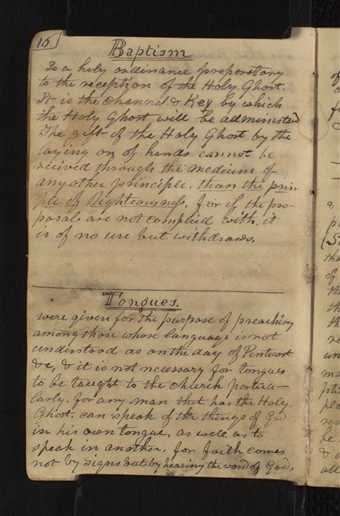 16
Baptism
Is a holy ordinance preparatory
to the reception of the Holy Ghost.
It is the Channel & Key by which
the Holy Ghost will be administed
The gift of the Holy Ghost by the
laying on of hands cannot be
recived through the medium of
any other principle, than the prin
ple of Righteousness, for if the pro-
posals are not complied with, it
is of no use but withdraws.
Tongues.
were given for the purpose of preaching
among those whose language is not
understood as on the day of Pentcost
&c, & it is not necessary for tongues
to be taught to the church particu-
larly. for any man that has the Holy
Ghost, can speak of the things of God
in his own tongue, as well as to
speak in another. for faith comes
not by signs but by hearing the word of God.